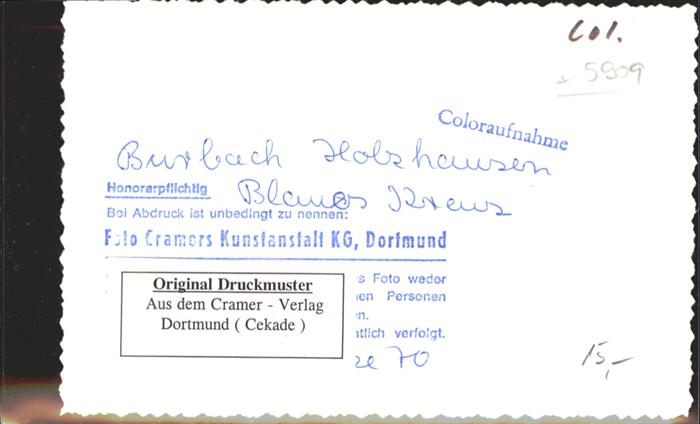 Col.
5909
Coloraufnahme
Burbach Holzhausen
Honorarpflichtig Blaues Kreuz
Bei Abdruck ist unbedingt zu nennen:
Foto Cramers Kunstanstalt KG, Dortmund
Original Druckmuster
Aus dem Cramer - Verlag
Dortmund ( Cekade )
s Foto weder
en Personen
n.
tlich verfolgt.
70
15,-